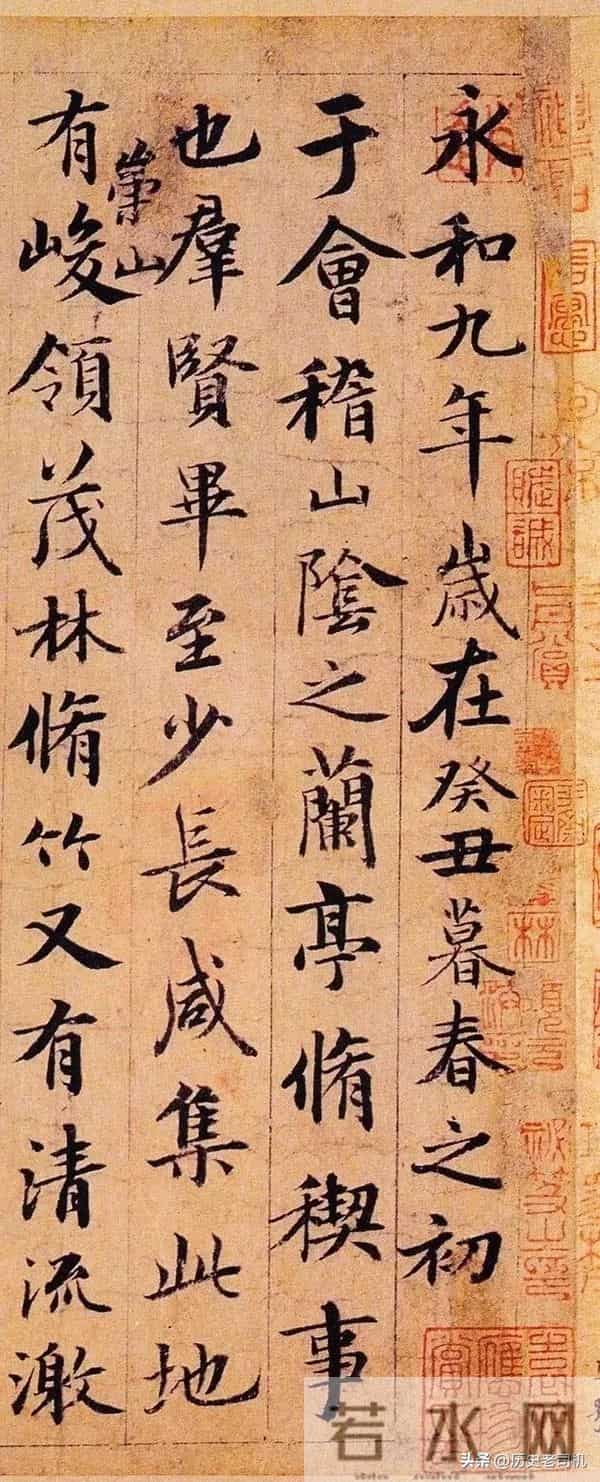 永和九年歲在癸丑暮春之初
于會稽山陰之蘭亭脩稧事
也羣賢畢至少長咸集此地
有崇山峻領茂林脩竹又有清流激
若水网
头条 @历史老司机